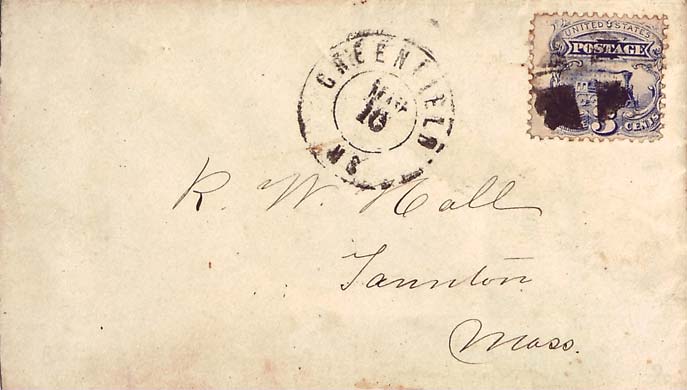 GREENFIELD
MAR
10
MS
UNITED STATES
POSTAGE
3 CENTS
R. W. Hall
Taunton
Mass.